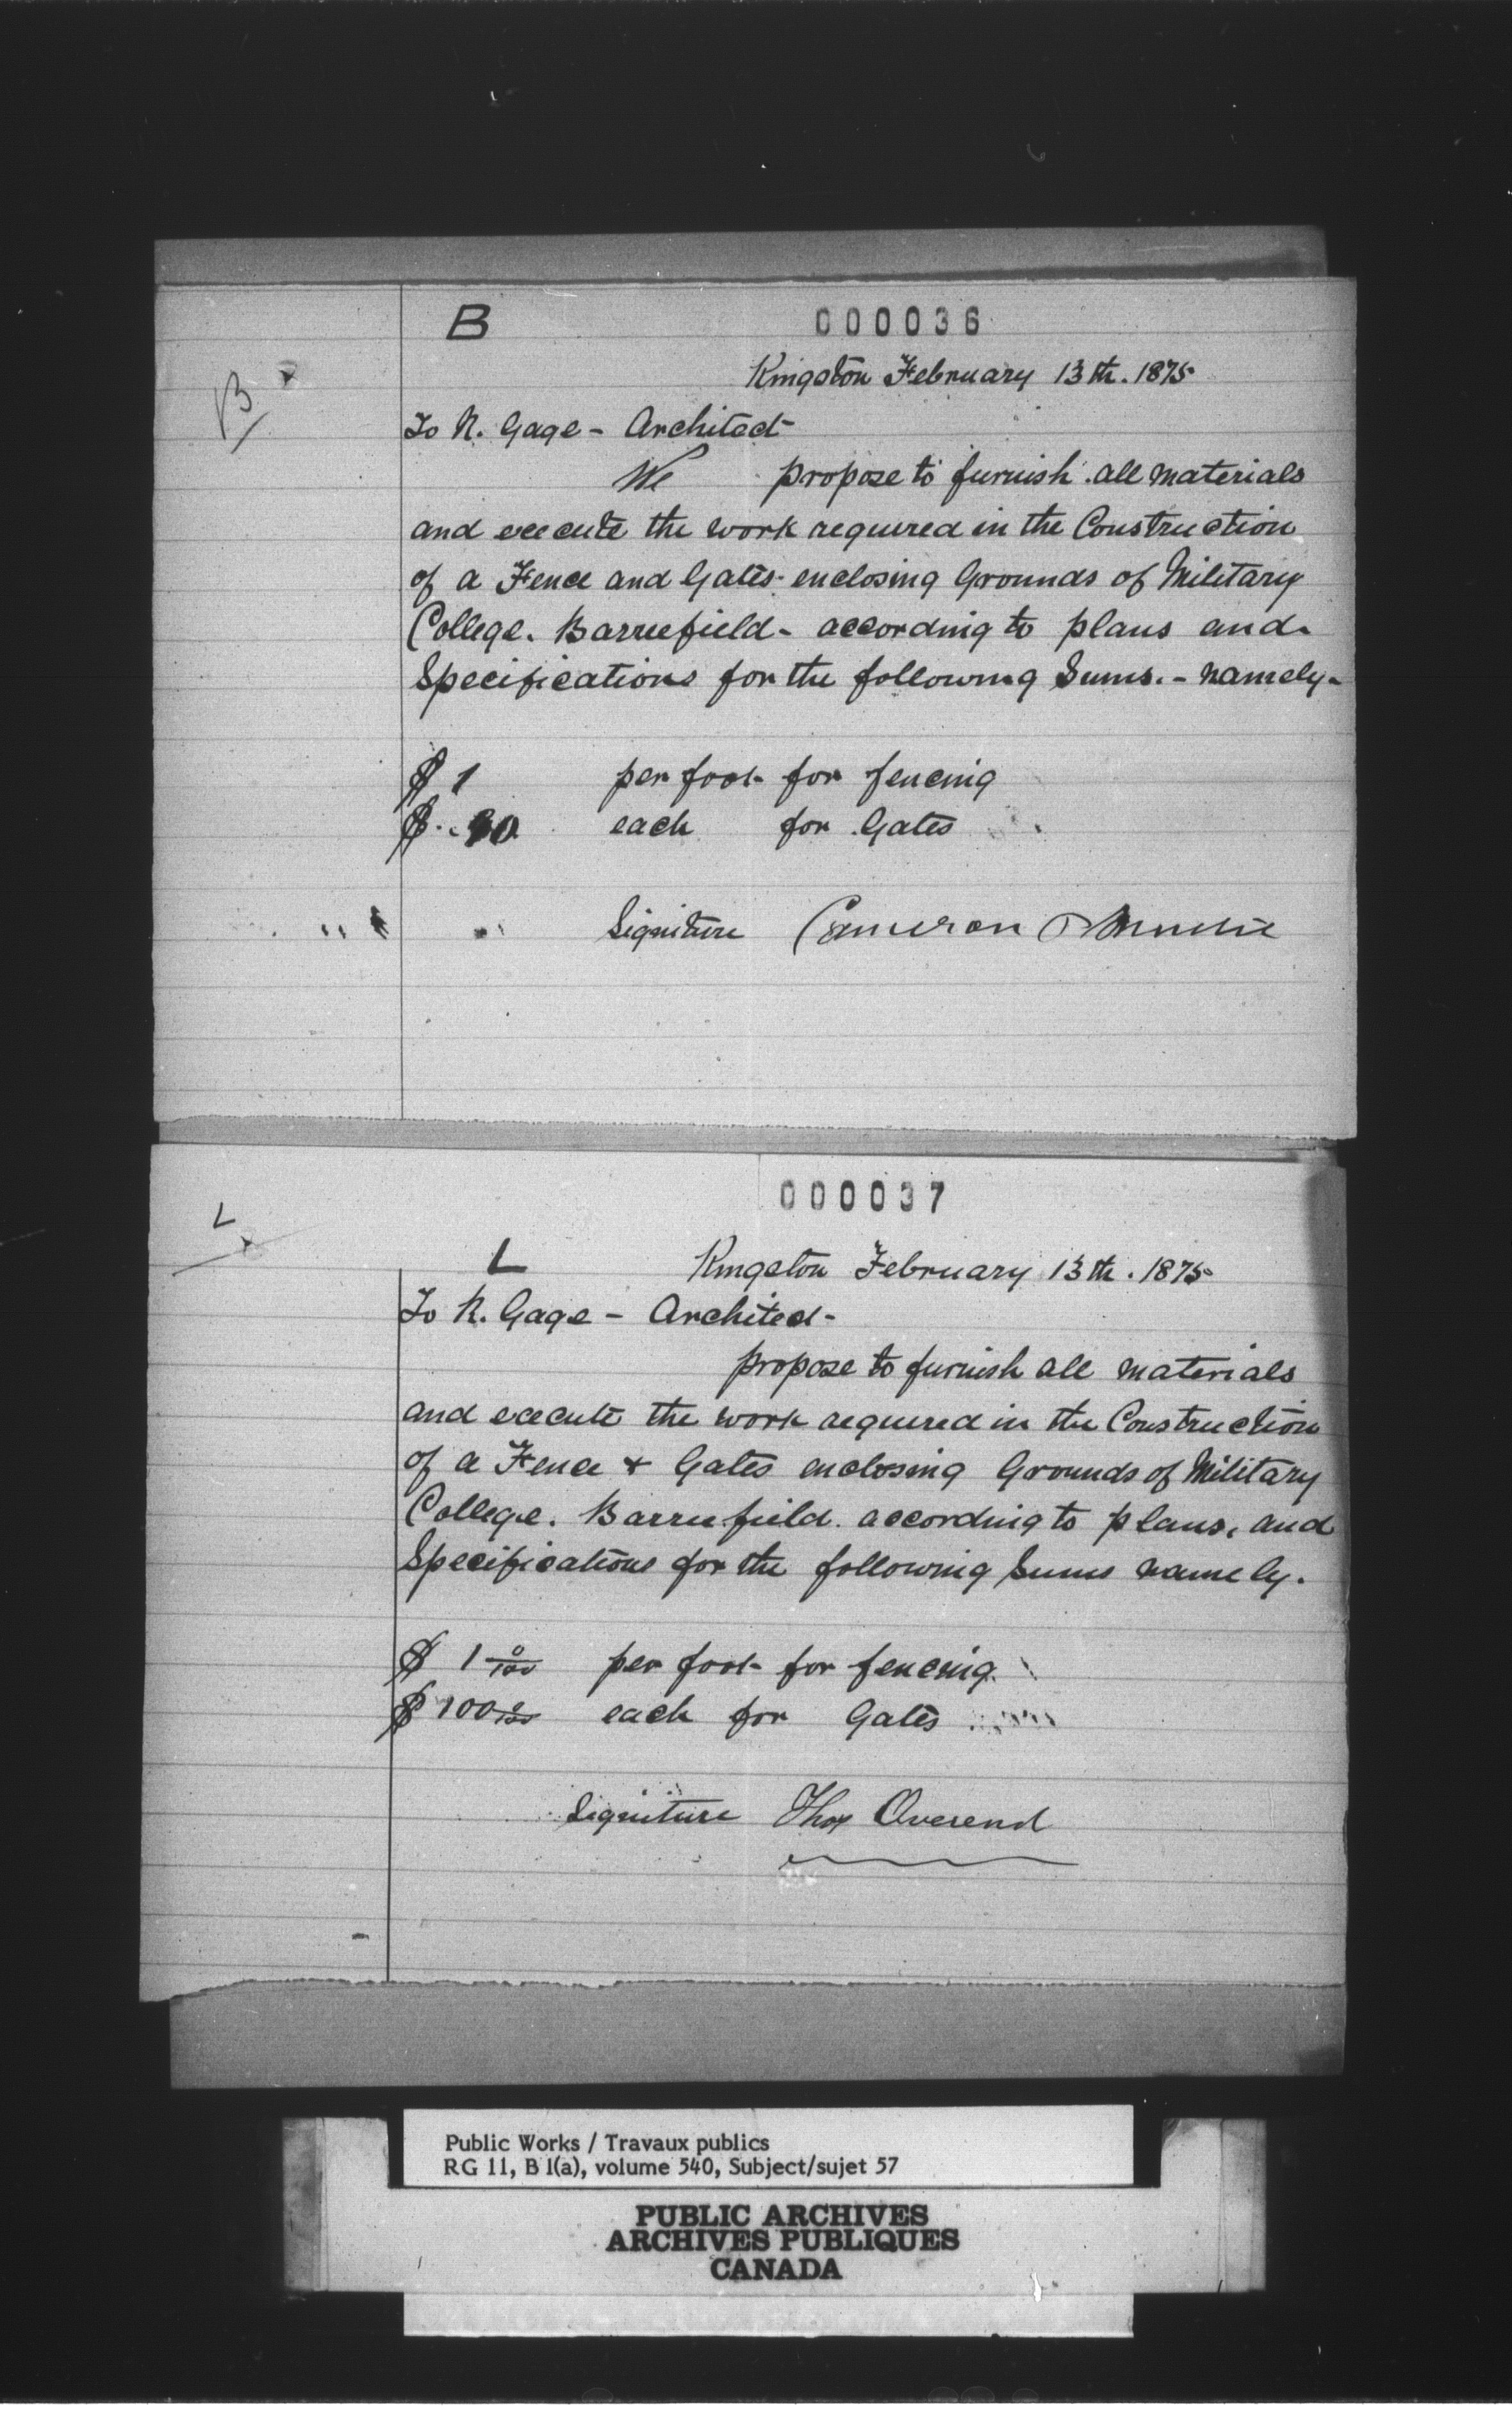 B
000036
B
Kingston February 13th. 1875
To R. Gage - Architect
We propose to furnish all materials
and execute the work required in the Construction
of a Fence and Gates enclosing Grounds of Military
College. Barriefield - according to plans and
Specifications for the following Sums. - namely -
$ 1 per foot for fencing
$ each for Gates
Signiture Cameron &
000037
L
L
Kingston February 13th. 1875
To R. Gage - Architect -
propose to furnish all materials
and execute the work required in the Construction
of a Fence & Gates enclosing Grounds of Military
College. Barriefield. according to plans, and
Specifications for the following Sums namely.
$ 1 0/100 per foot for fencing
$ 100 0/100 each for Gates
Signiture Thos Overend
Public Works / Travaux publics
RG 11, B 1(a), volume 540, Subject/sujet 57
PUBLIC ARCHIVES
ARCHIVES PUBLIQUES
CANADA